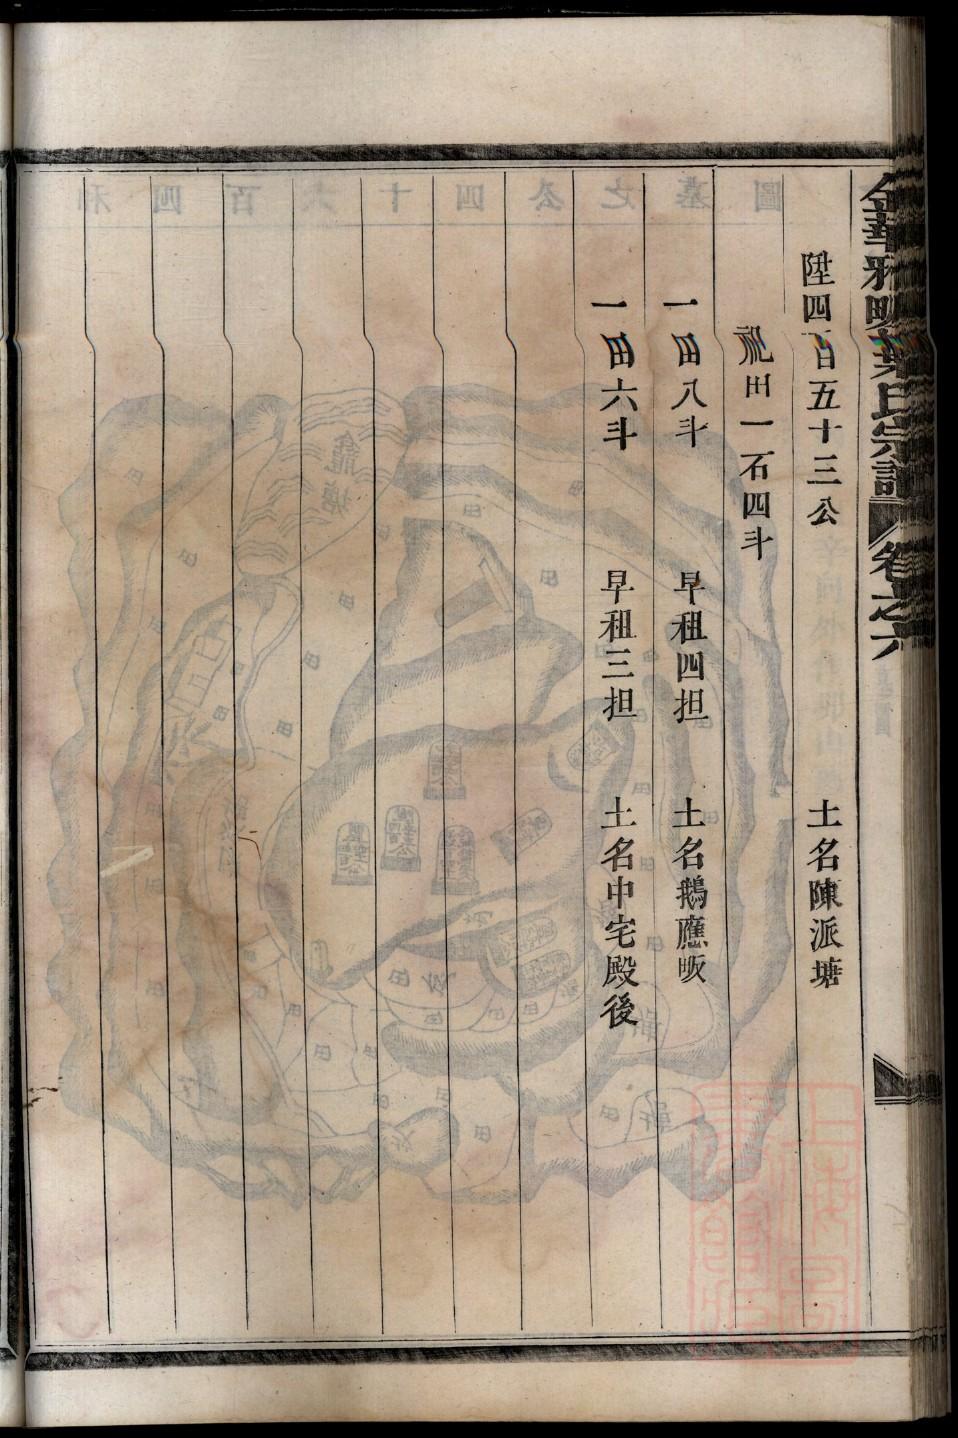 金華雅畈葉氏宗譜 卷之六
陞四百五十三公 土名陳派塘
祀田一石四斗
一田八斗 早租四担 土名鵝應畈
一田六斗 早租三担 土名中宅殿後